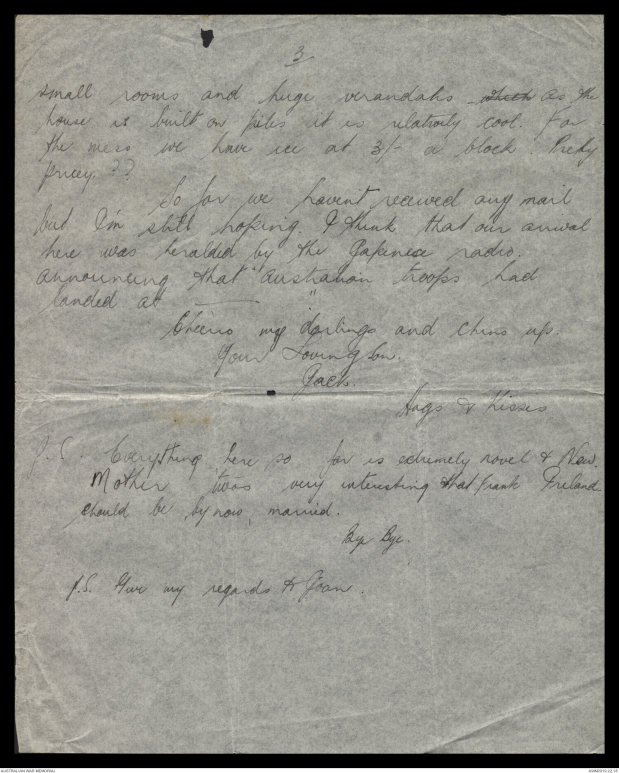 3
small rooms and huge verandahs which as the
house is built on piles it is relatively cool. For
the mess we have ice at 3/- a block. Pretty
pricey. ??
So far we havent received any mail
but I'm still hoping. I think that our arrival
here was heralded by the Japanese radio.
announcing that "Australian troops had
landed at ——— "
Cheerio my darlings and chins up.
Your Loving Son.
Jack.
Hugs & Kisses
P.S. Everything here so far is extremely novel & New.
Mother 'twas very interesting that Frank Ireland
should be, by now, married.
Bye Bye.
P.S. Give my regards to Joan.
AUSTRALIAN WAR MEMORIAL